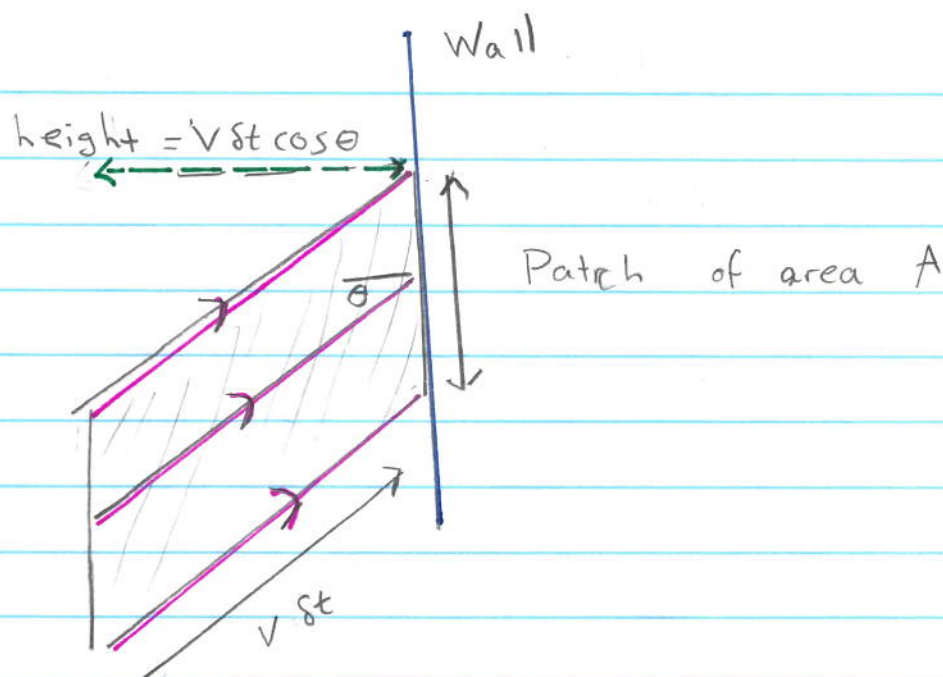 Wall
height = V δt cosθ
θ
Patch of area A
V δt